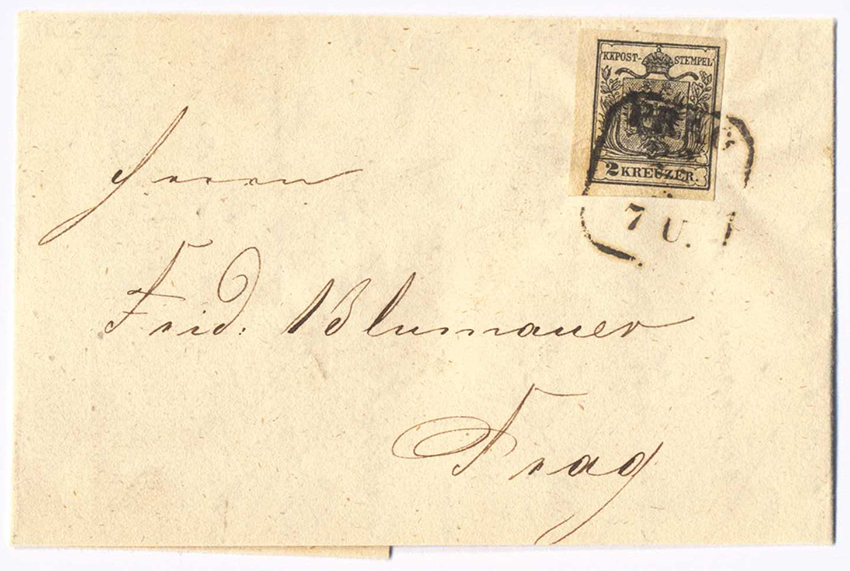 KKPOST-STEMPEL
2 KREUZER.
7 U.
Herrn
Frid. Blumauer
Prag